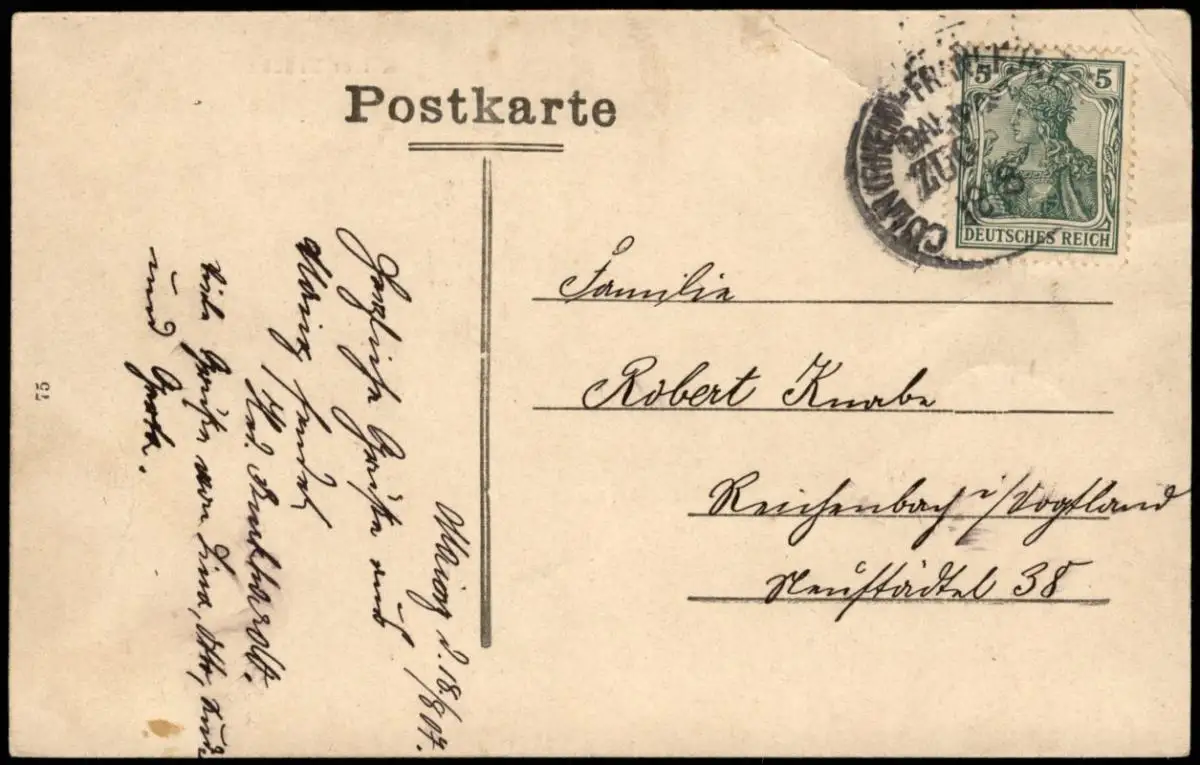 Postkarte
5 5
DEUTSCHES REICH
CÖLN (RHEIN)-FRANKF
BAHN
ZUG
Familie
Robert Knabe
Reichenbach i/Vogtland
Neustädtel 38
Mainz d. 18/8 07.
Herzliche Grüße aus
Mainz sendet
Viele Grüße von Lina, Otto,
und Grete.
75